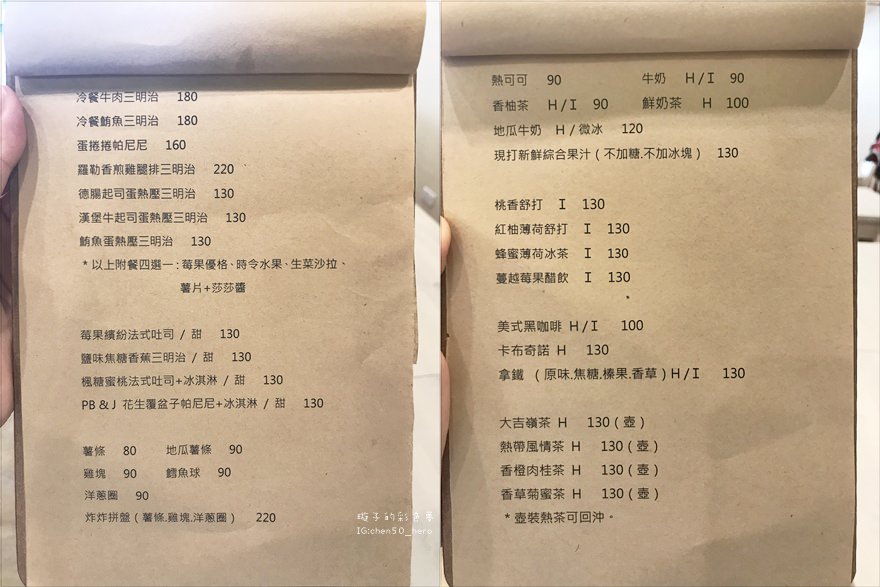 冷餐牛肉三明治 180
冷餐鮪魚三明治 180
蛋捲捲帕尼尼 160
羅勒香煎雞腿排三明治 220
德腸起司蛋熱壓三明治 130
漢堡牛起司蛋熱壓三明治 130
鮪魚蛋熱壓三明治 130
*以上附餐四選一:莓果優格、時令水果、生菜沙拉、
薯片+莎莎醬
莓果繽紛法式吐司 / 甜 130
鹽味焦糖香蕉三明治 / 甜 130
楓糖蜜桃法式吐司+冰淇淋 / 甜 130
PB & J 花生覆盆子帕尼尼+冰淇淋 / 甜 130
薯條 80 地瓜薯條 90
雞塊 90 鱈魚球 90
洋蔥圈 90
炸炸拼盤(薯條.雞塊.洋蔥圈) 220
璇子的彩色夢
IG:chen50_hero
熱可可 90 牛奶 H / I 90
香柚茶 H / I 90 鮮奶茶 H 100
地瓜牛奶 H / 微冰 120
現打新鮮綜合果汁(不加糖.不加冰塊) 130
桃香舒打 I 130
紅柚薄荷舒打 I 130
蜂蜜薄荷冰茶 I 130
蔓越莓果醋飲 I 130
美式黑咖啡 H / I 100
卡布奇諾 H 130
拿鐵 (原味.焦糖.榛果.香草) H / I 130
大吉嶺茶 H 130(壺)
熱帶風情茶 H 130(壺)
香橙肉桂茶 H 130(壺)
香草菊蜜茶 H 130(壺)
*壺裝熱茶可回沖。